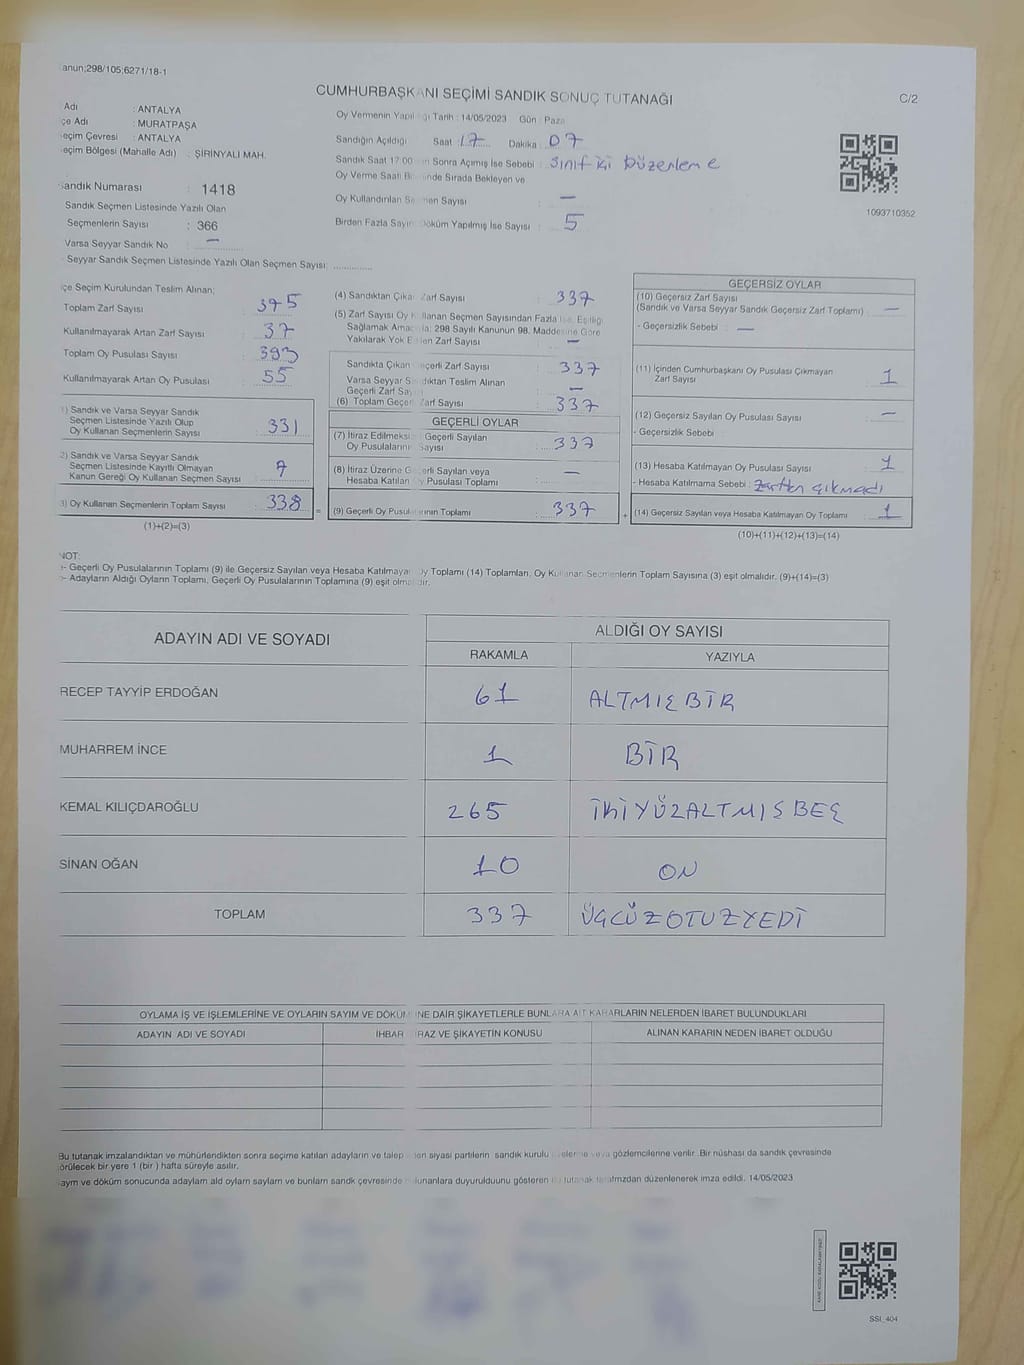 anun;298/105;6271/18-1
CUMHURBAŞKANI SEÇİMİ SANDIK SONUÇ TUTANAĞI
C/2
Adı : ANTALYA
çe Adı : MURATPAŞA
eçim Çevresi : ANTALYA
eçim Bölgesi (Mahalle Adı) : ŞİRİNYALI MAH.
Sandık Numarası : 1418
Sandık Seçmen Listesinde Yazılı Olan
Seçmenlerin Sayısı : 366
Varsa Seyyar Sandık No : —
Seyyar Sandık Seçmen Listesinde Yazılı Olan Seçmen Sayısı: ............
Oy Vermenin Yapıldığı Tarih : 14/05/2023 Gün : Paza
Sandığın Açıldığı Saat : 17 Dakika : 07
Sandık Saat 17:00 n Sonra Açımış İse Sebebi : Sınıf içi Düzenleme
Oy Verme Saati B inde Sırada Bekleyen ve
Oy Kullandırılan Seçmen Sayısı : —
Birden Fazla Sayım Döküm Yapılmış İse Sayısı : 5
1093710352
çe Seçim Kurulundan Teslim Alınan;
Toplam Zarf Sayısı : 375
Kullanılmayarak Artan Zarf Sayısı : 37
Toplam Oy Pusulası Sayısı : 393
Kullanılmayarak Artan Oy Pusulası : 55
1) Sandık ve Varsa Seyyar Sandık
Seçmen Listesinde Yazılı Olup
Oy Kullanan Seçmenlerin Sayısı : 331
2) Sandık ve Varsa Seyyar Sandık
Seçmen Listesinde Kayıtlı Olmayan
Kanun Gereği Oy Kullanan Seçmen Sayısı : 7
3) Oy Kullanan Seçmenlerin Toplam Sayısı : 338
(1)+(2)=(3)
(4) Sandıktan Çıkan Zarf Sayısı : 337
(5) Zarf Sayısı Oy Kullanan Seçmen Sayısından Fazla İse, Eşitliği
Sağlamak Amacıyla; 298 Sayılı Kanunun 98. Maddesine Göre
Yakılarak Yok Edilen Zarf Sayısı : —
Sandıkta Çıkan Geçerli Zarf Sayısı : 337
Varsa Seyyar Sandıktan Teslim Alınan
Geçerli Zarf Sayısı : —
(6) Toplam Geçerli Zarf Sayısı : 337
GEÇERLİ OYLAR
(7) İtiraz Edilmeksi Geçerli Sayılan
Oy Pusulalarının Sayısı : 337
(8) İtiraz Üzerine Geçerli Sayılan veya
Hesaba Katılan Oy Pusulası Toplamı : —
(9) Geçerli Oy Pusulalarının Toplamı : 337
GEÇERSİZ OYLAR
(10) Geçersiz Zarf Sayısı
(Sandık ve Varsa Seyyar Sandık Geçersiz Zarf Toplamı) : —
- Geçersizlik Sebebi : —
(11) İçinden Cumhurbaşkanı Oy Pusulası Çıkmayan
Zarf Sayısı : 1
(12) Geçersiz Sayılan Oy Pusulası Sayısı : —
- Geçersizlik Sebebi :
(13) Hesaba Katılmayan Oy Pusulası Sayısı : 1
- Hesaba Katılmama Sebebi : Zarftan çıkmadı
(14) Geçersiz Sayılan veya Hesaba Katılmayan Oy Toplamı : 1
(10)+(11)+(12)+(13)=(14)
NOT:
Geçerli Oy Pusulalarının Toplamı (9) ile Geçersiz Sayılan veya Hesaba Katılmayan Oy Toplamı (14) Toplamları, Oy Kullanan Seçmenlerin Toplam Sayısına (3) eşit olmalıdır. (9)+(14)=(3)
Adayların Aldığı Oyların Toplamı, Geçerli Oy Pusulalarının Toplamına (9) eşit olmalıdır.
ADAYIN ADI VE SOYADI ALDIĞI OY SAYISI
RAKAMLA YAZIYLA
RECEP TAYYİP ERDOĞAN 61 ALTMIŞBİR
MUHARREM İNCE 1 BİR
KEMAL KILIÇDAROĞLU 265 İKİYÜZALTMIŞBEŞ
SİNAN OĞAN 10 ON
TOPLAM 337 ÜÇYÜZOTUZYEDİ
OYLAMA İŞ VE İŞLEMLERİNE VE OYLARIN SAYIM VE DÖKÜMÜNE DAİR ŞİKAYETLERLE BUNLARA AİT KARARLARIN NELERDEN İBARET BULUNDUKLARI
ADAYIN ADI VE SOYADI İHBAR İTİRAZ VE ŞİKAYETİN KONUSU ALINAN KARARIN NEDEN İBARET OLDUĞU
Bu tutanak imzalandıktan ve mühürlendikten sonra seçime katılan adayların ve talep eden siyasi partilerin sandık kurulu üyelerine veya gözlemcilerine verilir. Bir nüshası da sandık çevresinde
örülecek bir yere 1 (bir ) hafta süreyle asılır.
aym ve döküm sonucunda adaylam ald oylam saylam ve bunlam sandk çevresinde bulunanlara duyurulduunu gösteren bu tutanak tarafmzdan düzenlenerek imza edildi. 14/05/2023
SSI_404